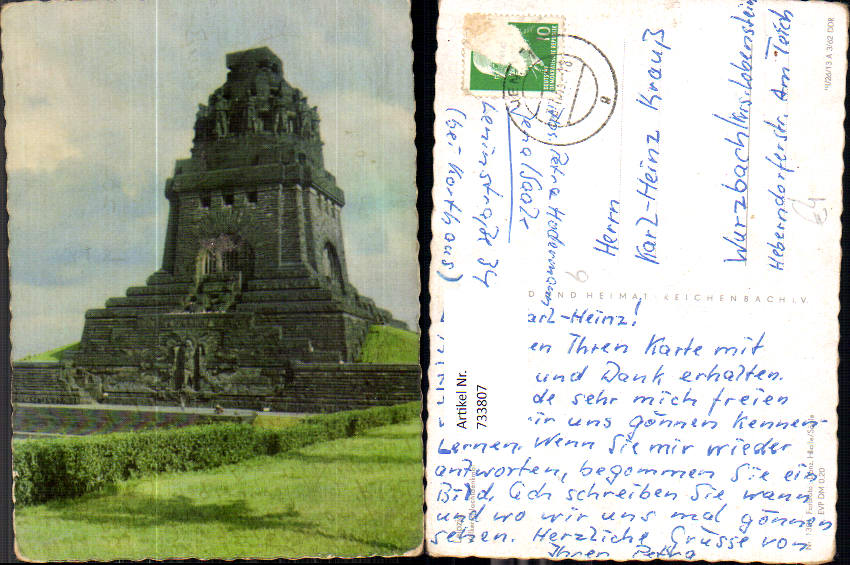 Absd. Petra Hadermann
Jena/Saale
Leninstraße 34
(bei Korthaus)
JENA
10
DEUTSCHE
DEMOKRATISCHE REPUBLIK
Herrn
Karl-Heinz Krauß
Wurzbach/Krs. Lobenstein
Heberndorferstr. Am Teich
6
€4
D UND HEIMAT REICHENBACH I. V.
V/26/13 A 3/62 DDR
Artikel Nr.
733807
arl-Heinz!
en Ihren Karte mit
und Dank erhalten.
de sehr mich freien
ir uns gönnen kennen-
Lernen. Wenn Sie mir wieder
antworten, begommen Sie ein
Bild. Och schreiben Sie wann
und wo wir uns mal gönnen
sehen. Herzliche Grüsse von
Ihren Petra
EVP DM 0.20